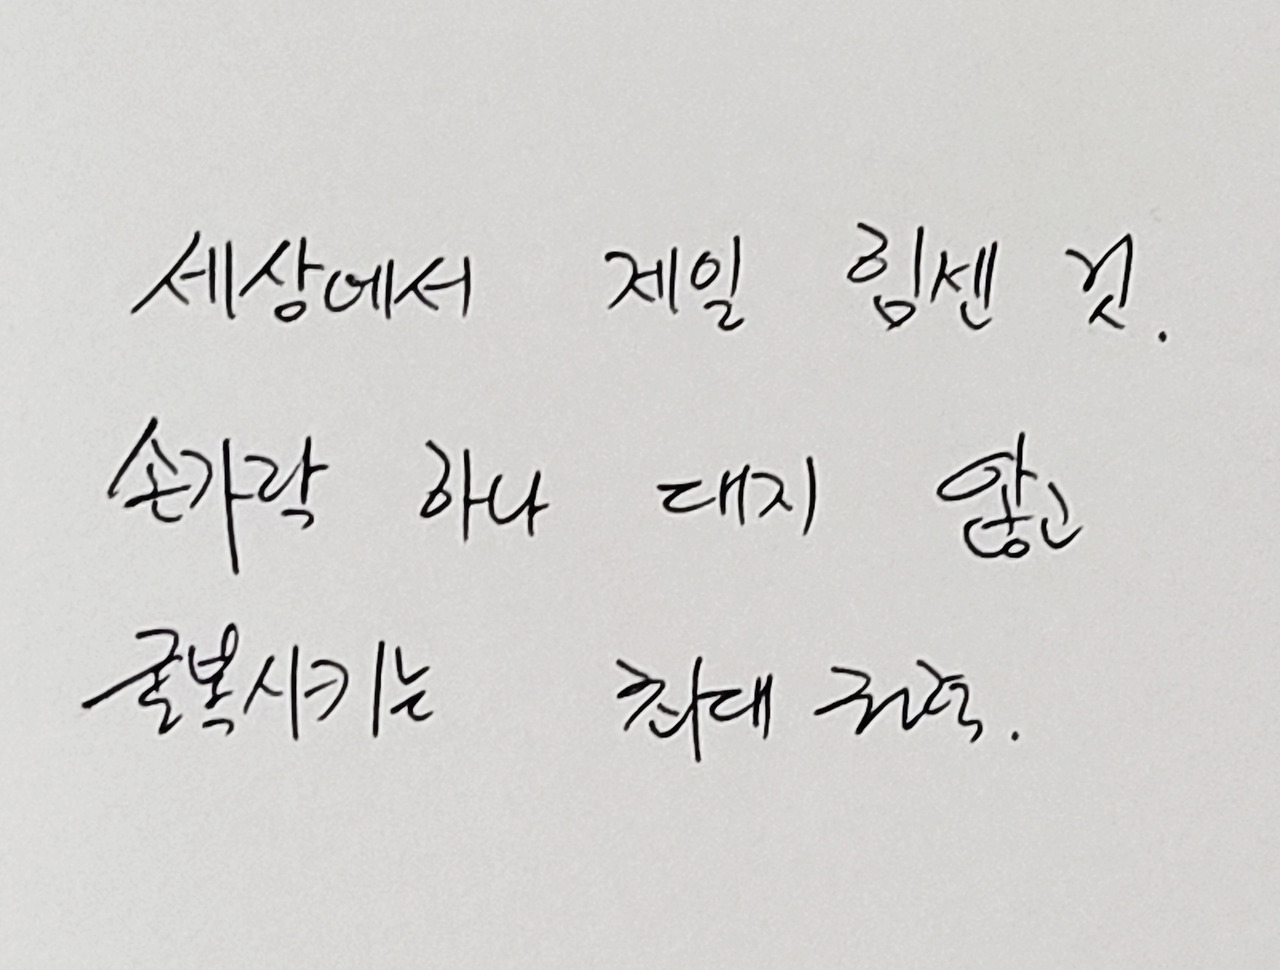 세상에서 제일 힘센 것.
손가락 하나 대지 않고
굴복시키는 최대